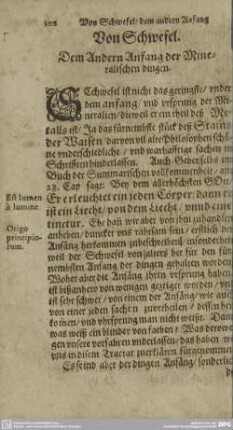 102 Von Schwefel/ dem andern Anfang
Von Schwefel.
Dem Andern Anfang der Mine-
ralischen dingen.
SChwefel ist nicht das geringste/ vnder
dem anfang/ vnd vrsprung der Mi-
neralien/ dieweil er ein theil deß Me-
talls ist/ Ja das fürnembste stück deß Steins
der Weisen/ darvon vil alte Philosophen schö-
ne vnderschiedliche/ vnd warhafftige sachen in
Schrifften hinderlassen. Auch Geber selbs im
Buch der Summarischen vollkommenheit/ am
28. Cap sagt: Bey dem allerhöchsten GOtt
Er erleuchtet ein jeden Cörper/ dann er
ist ein Liecht/ von dem Liecht/ vnnd eine
tinctur. Ehe dañ wir aber von ihm zuhandlen
anheben/ duncket vns rahtsam sein/ erstlich den
Anfang herkommen zubeschreiben/ insonderheit
weil der Schwefel von jalters her für den für-
nembsten Anfang der dingen gehalten worden
Woher aber die Anfäng ihren vrsprung haben
ist bißanhero von wenigen gezeiget worden/ vnd
ist sehr schwer/ von einem der Anfäng/ wie auch
von einer jeden sachen zuvrtheilen/ dessen her-
kommen/ vnd vhrsprung man nicht weißt. Dann
was weißt ein blinder von farben? Was deroweg-
gen vnsere vorfahren vnderlassen/ das haben wir
vns in disem Tractat zuerklären fürgenommen.
Es seind aber der dingen Anfäng/ sonderlich
Est lumen
à lumine
Origo
principio-
rum.